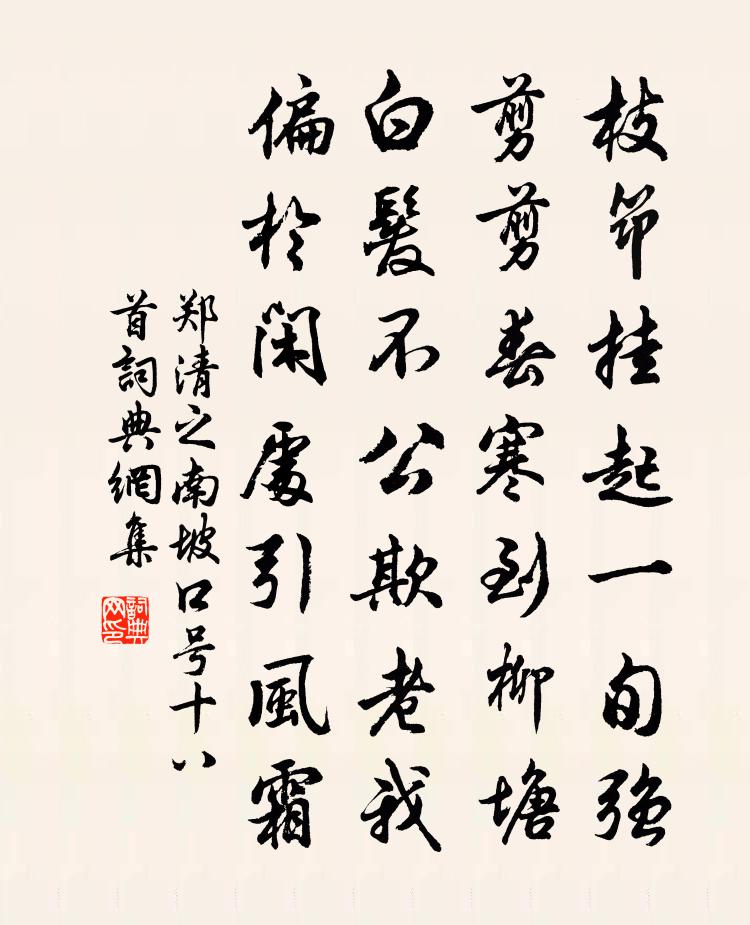 枝筇挂起一旬强
剪剪春寒到柳塘
白髮不公欺老我
偏於閑處引風霜
郑清之南坡口号十八
首詞典網集
詞典网印